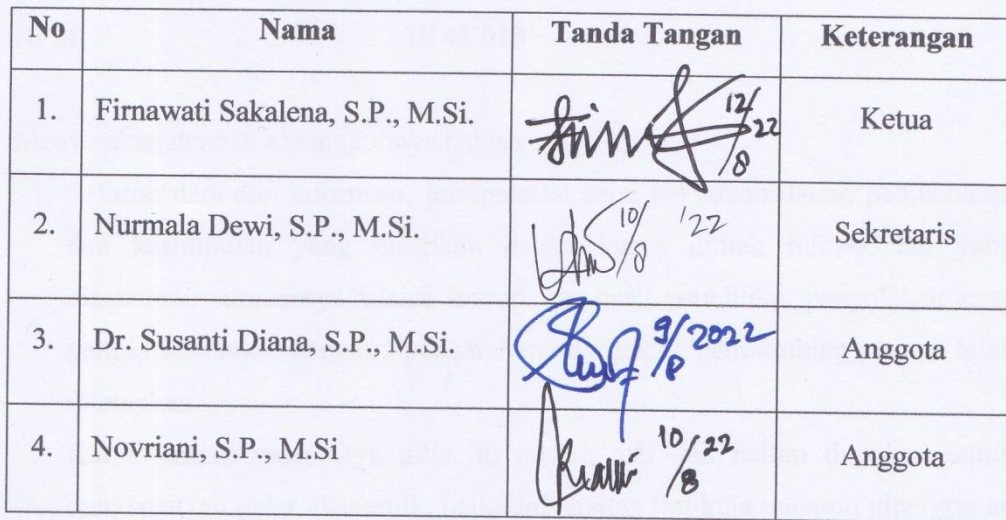 No Nama Tanda Tangan Keterangan
1. Firnawati Sakalena, S.P., M.Si. 12/8 22 Ketua
2. Nurmala Dewi, S.P., M.Si. 10/8 '22 Sekretaris
3. Dr. Susanti Diana, S.P., M.Si. 9/8 2022 Anggota
4. Novriani, S.P., M.Si 10/8 /22 Anggota